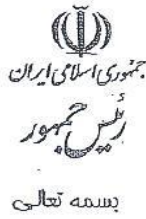 جمهوری اسلامی ایران
رئیس جمهور
بسمه تعالی